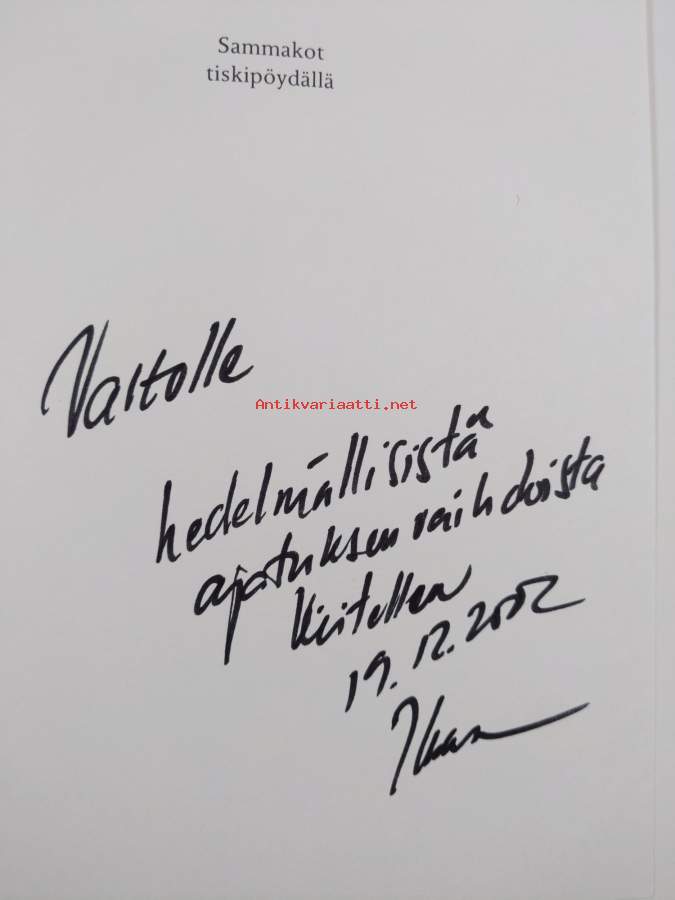 Sammakot
tiskipöydällä
Valtolle
Antikvariaatti.net
hedelmällisistä
ajatuksenvaihdoista
kiitellen
19.12.2002